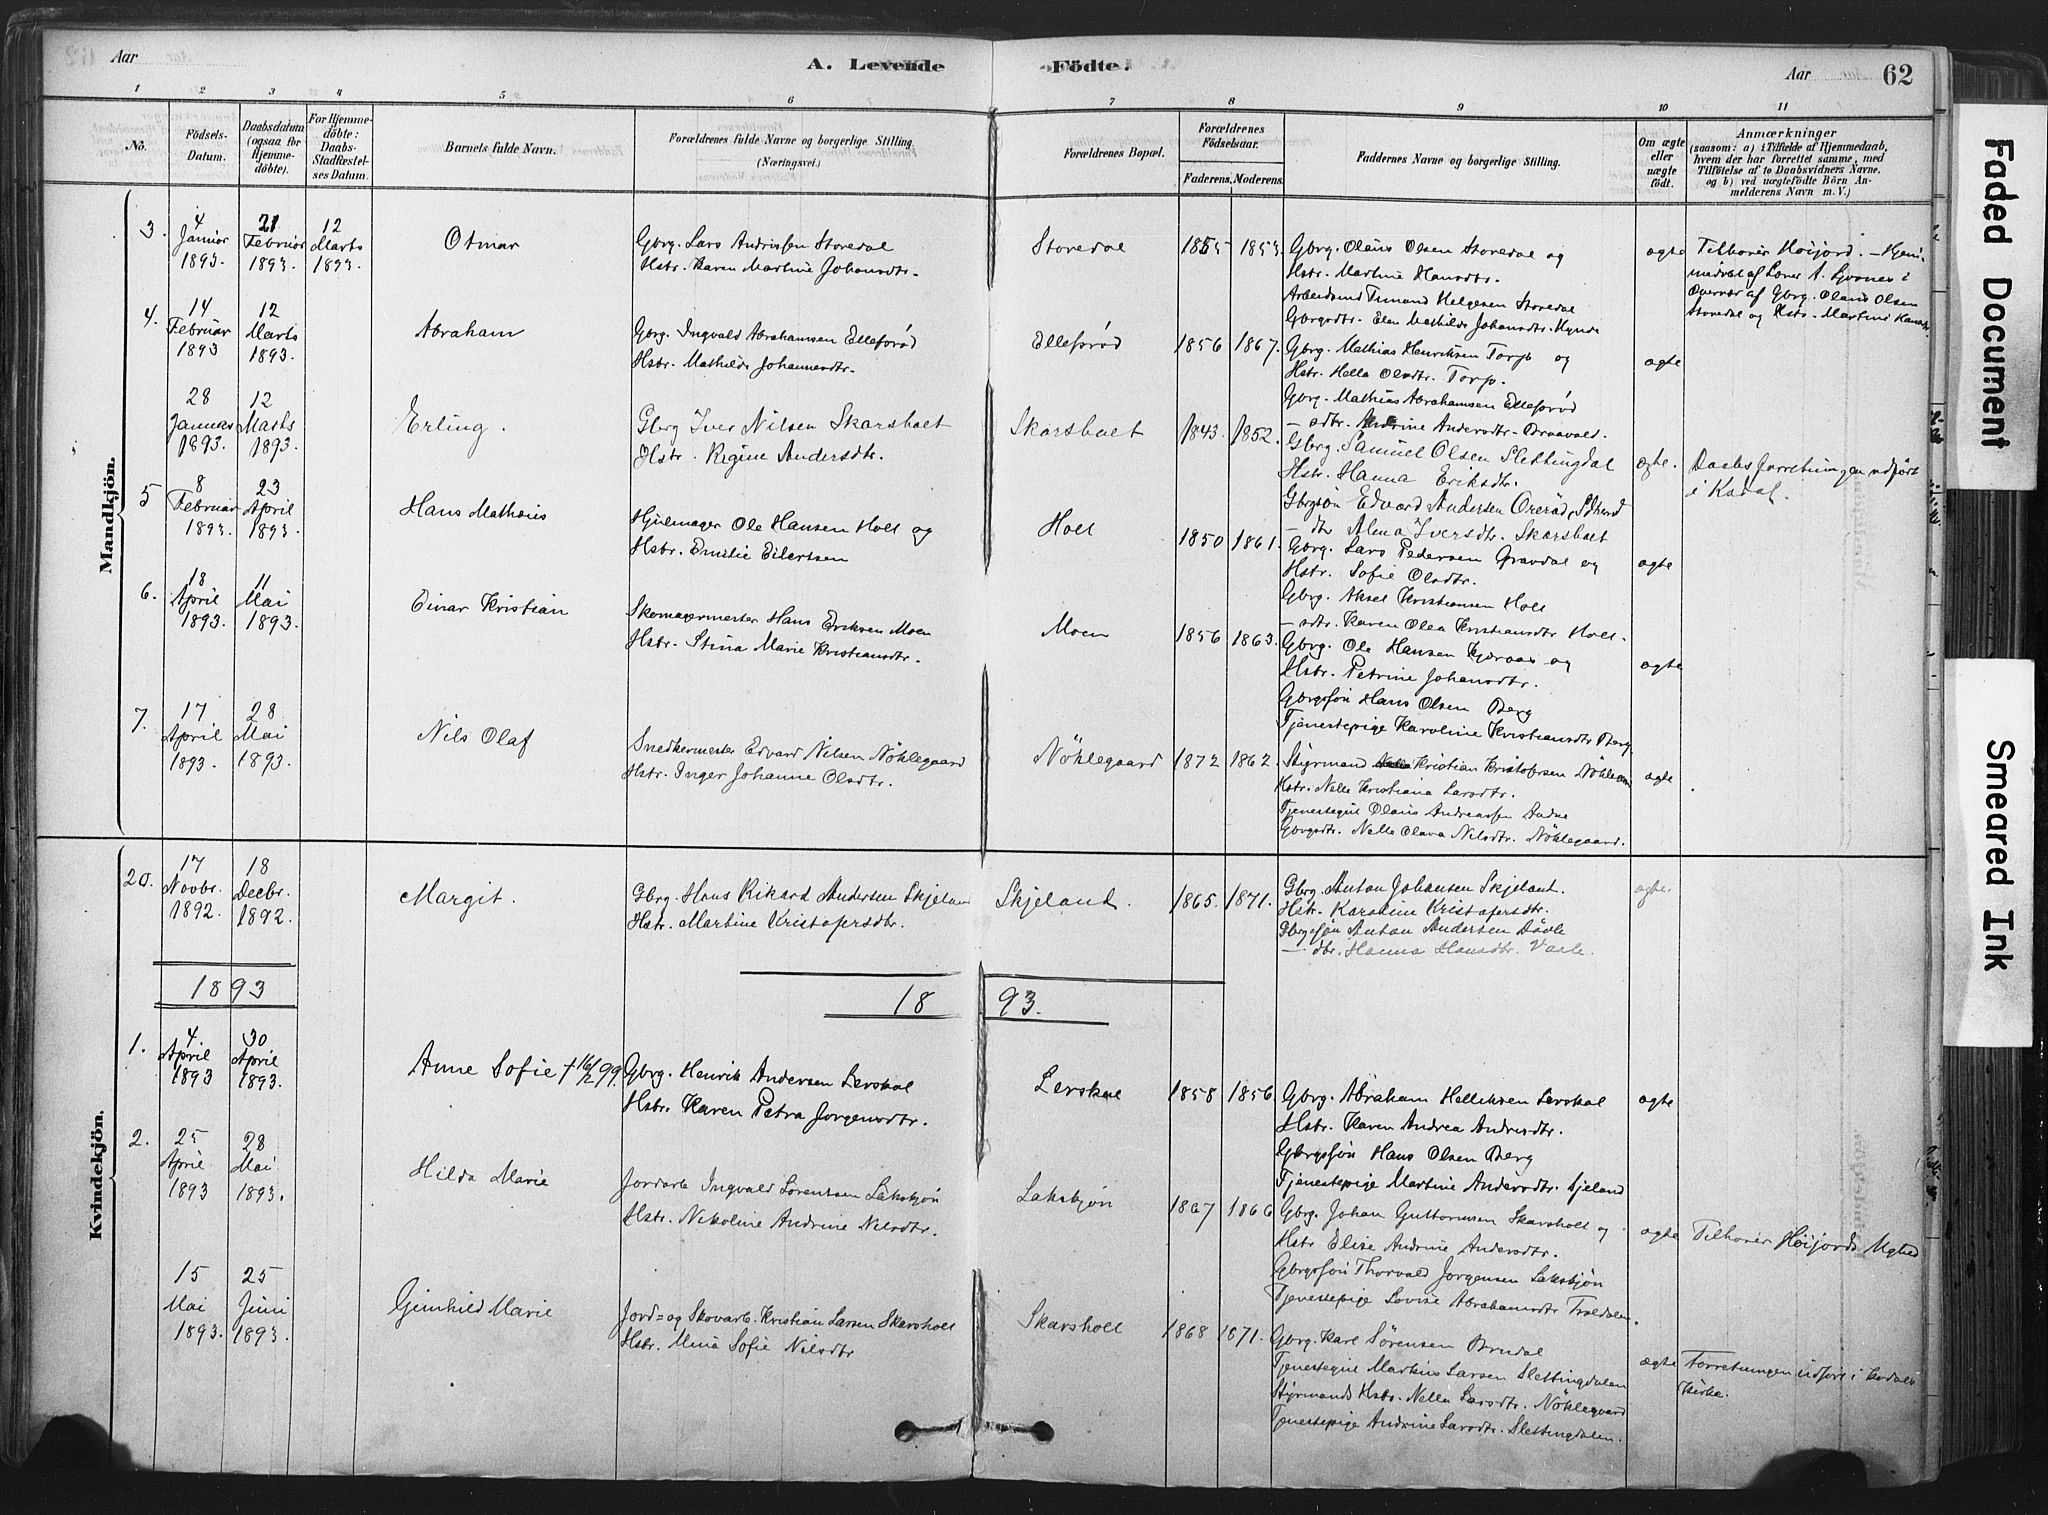 Aar
A. Levende
Födte.
Aar
62
1 2 3 4 5 6 7 8 9 10 11
No.
Födsels-
Datum.
Daabsdatum
(ogsaa för
Hjemme-
döbte).
For Hjemme-
döbte:
Daabs-
Stadfæstel-
ses Datum.
Barnets fulde Navn.
Forældrenes fulde Navne og borgerlige Stilling.
(Næringsvei.)
Forældrenes Bopæl.
Forældrenes
Födselsaar.
Faderens. Moderens.
Faddernes Navne og borgerlige Stilling.
Om ægte
eller
uægte
födt.
Anmærkninger
(saasom: a) i Tilfælde af Hjemmedaab,
hvem der har forrettet samme, med
Tilföielse af to Daabsvidners Navne.
og b) ved uægtefödte Börn An-
melderens Navn m. V.)
Mandkjön.
3.
4
Januar
1893
21
Februar
1893.
12
Marts
1893.
Otmar
Gbrg. Lars Andrissen Storedal
Hstr. Karen Martine Johansdtr.
Storedal
1855
1853.
Gbrg. Olaus Olsen Storedal og
Hstr. Martine Hansdtr.
Arbeidsmd Helgesen Storedal
Gbrgsdtr. Elen Mathilde Johansdtr.
ægte
Tilhører Höijord. – Hjem-
medøbt af Lærer A.
Overvær af Gbrg. Olaus Olsen
Storedal og Hstr. Martine
4.
14
Februar
1893
12
Marts
1893.
Abraham
Gbrg. Ingvald Abrahamsen Ellefsrød
Hstr. Mathilde Johannesdtr.
Ellefsrød
1856
1867.
Gbrg. Mathias Henriksen Torp og
Hstr. Hella Olsdtr. Torp.
Gbrg. Mathias Abrahamsen Ellefsrød
– sdtr. Andrine Andersdtr. Bruavald.
ægte
28
Januar
1893.
12
Marts
1893.
Erling.
Gbrg Iver Nilsen Skarsholt
Hstr. Regine Andersdtr.
Skarsholt
1843.
1852.
Gbrg. Samuel Olsen Slettingdal
Hstr. Hanna Eriksdtr.
Gbrgsøn Edvard Andersen
– dtr Alma Iversdtr. Skarsholt
ægte.
Daabsforretningen udført
i Kodal.
5
8
Februar
1893.
23
April
1893.
Hans Mathæus
Hjulmager Ole Hansen Holt og
Hsbr. Emilie Eilertsen
Holt
1850
1861.
Gbrg. Lars Pedersen Gravdal og
Hstr. Sofie Olsdtr.
Gbrg. Aksel Kristiansen Holt
– sdtr. Karen Olea Kristiansdtr Holt.
ægte
6.
18
April
1893.
11
Mai
1893.
Einar Kristian
Skomagermester Hans Eriksen Moen
Hstr. Stina Marie Kristiansdtr.
Moen
1856
1863.
Gbrg. Ole Hansen og
Hstr. Petrine Johansdtr.
Gbrgsøn Hans Olsen Berg
Tjenestepige Karoline Kristiansdtr Berg
ægte
7.
17
April
1893.
28
Mai
1893.
Nils Olaf
Snedkermester Edvard Nilsen Nöklegaard
Hstr. Inger Johanne Olsdtr.
Nöklegaard
1872
1862.
Styrmand Kristian Kristofersen
Hstr. Nella Kristiana Larsdtr.
Tjenestegut Olaus Andreassen
Gbrgsdtr. Nella Olava Nilsdtr. Nöklegaard.
ægte
Kvindekjön.
20.
17
Novbr.
1892.
18
Decbr.
1892.
Margit.
Gbrg. Hans Rikard Andersen Skjelan
Hstr. Martine Kristofersdtr.
Skjeland.
1865.
1871.
Gbrg. Anton Johansen Skjeland.
Hstr. Karoline Kristofersdtr.
Gbrgsøn Anton Andersen
– dtr. Hanna Hansdtr.
ægte.
1893
18
93.
1.
4
April
1893
30
April
1893.
Anne Sofie † 16/2 99.
Gbrg. Henrik Andersen Lerskal
Hsbr. Karen Petra Jorgensdtr.
Lerskal
1858
1856
Gbrg. Abraham Helliksen Lerskal
Hstr. Karen Andrea Andersdtr.
Gbrgsøn Hans Olsen Berg
Tjenestepige Martine Andersdtr. Sjeland
ægte
2.
25
April
1893
28
Mai
1893.
Hilda Marie
Jordarb Ingvald Lorentsen Laksbjön
Hstr. Nikoline Andrine Nilsdtr.
Laksbjön
1867
1866
Gbrg. Johan Guttormsen Skarsholt og
Hstr Elise Andrine Andersdtr.
Gbrgsøn Thorvald Jorgensen Laksbjön
Tjenestepige Lovise Abrahamsdtr Troldalen.
ægte
Tilhører Höijords Mghed
15
Mai
1893.
25
Juni
1893.
Gunhild Marie
Jord= og Skovarb. Kristian Larsen Skarsholt
Hstr. Mina Sofie Nilsdtr
Skarsholt
1868
1871.
Gbrg. Karl Sörensen Brudal
Tjenestegut Markus Larsen Slettingdalen
Styrmands Hstr. Nella Larsdtr. Nöklegaard
Tjenestepige Andrine Larsdtr. Slettingdalen.
ægte
Forretningen udført i Kodals
Kirke.
Faded Document
Smeared Ink